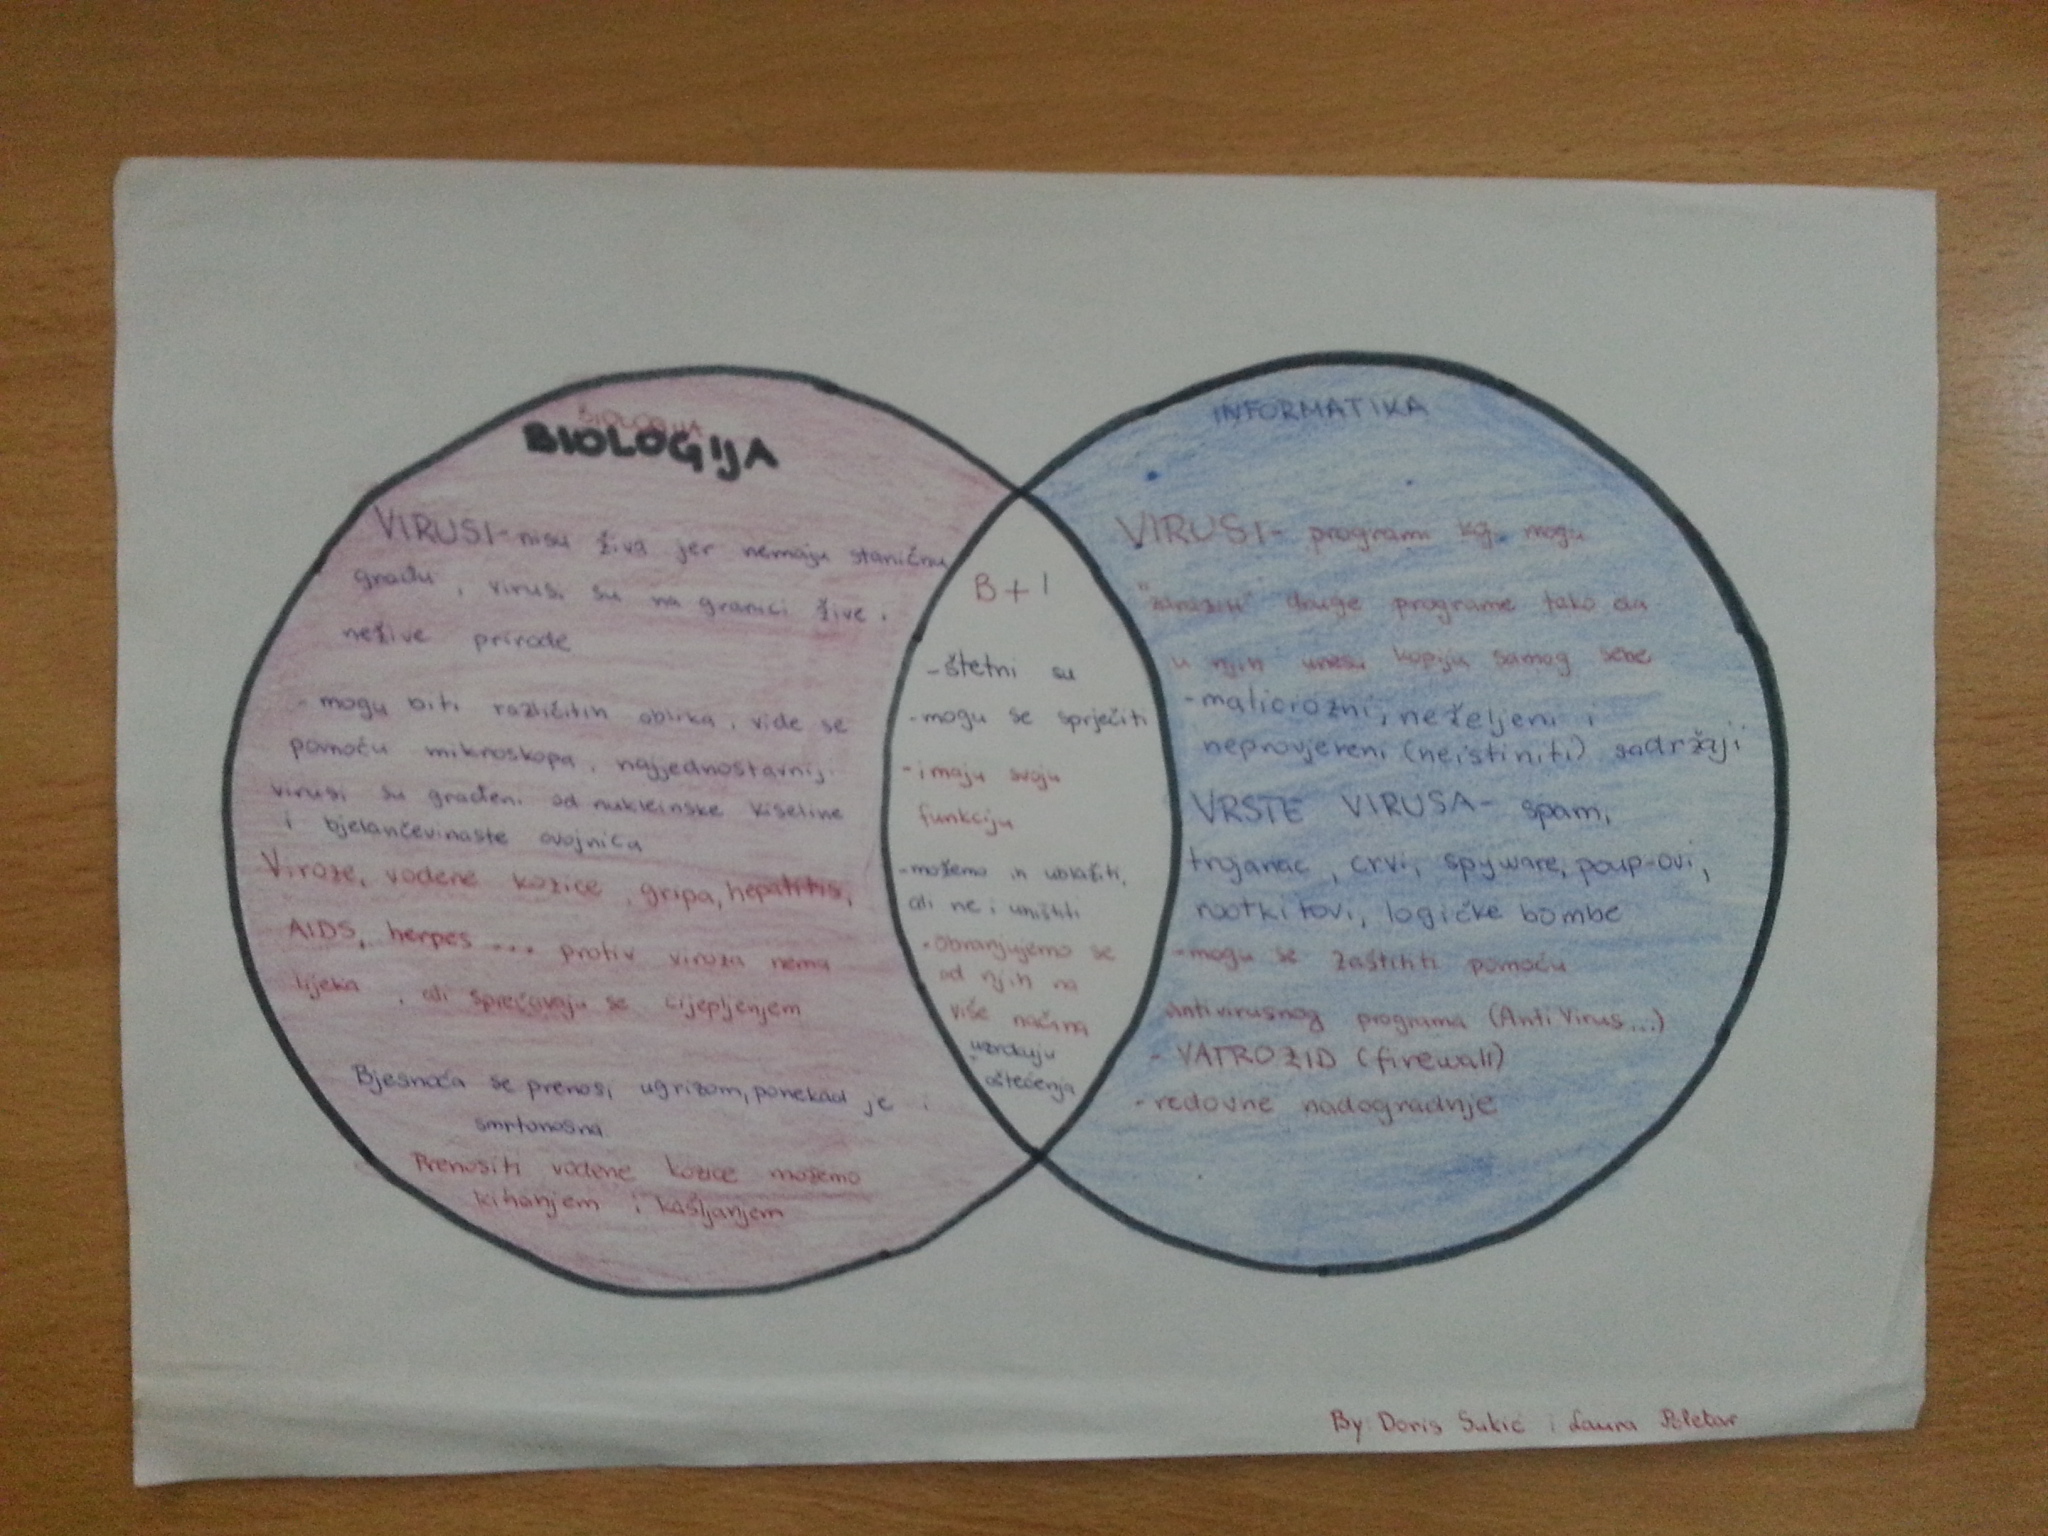 BIOLOGIJA
BIOLOGIJA
VIRUSI - nisu živa jer nemaju staničnu
građu, virusi su na granici žive i
nežive prirode
- mogu biti različitih oblika, vide se
pomoću mikroskopa, najjednostavniji
virusi su građeni od nukleinske kiseline
i bjelančevinaste ovojnica
Viroze, vodene kozice, gripa, hepatitis,
AIDS, herpes ... protiv viroza nema
lijeka, ali sprečavaju se cijepljenjem
Bjesnoća se prenosi ugrizom, ponekad je i
smrtonosna
Prenositi vodene kozice možemo
kihanjem i kašljanjem
B + I
- štetni su
- mogu se spriječiti
- imaju svoju
funkciju
- možemo ih ublažiti,
ali ne i uništiti
- obranjujemo se
od njih na
više načina
- uzrokuju
oštećenja
INFORMATIKA
VIRUSI - programi koji mogu
"zaraziti" druge programe tako da
u njih unesu kopiju samog sebe
- maliciozni, neželjeni i
neprovjereni (neistiniti) sadržaji
VRSTE VIRUSA - spam,
trojanac, crvi, spyware, poup-ovi,
rootkitovi, logičke bombe
- mogu se zaštititi pomoću
antivirusnog programa (AntiVirus...)
- VATROZID (firewall)
- redovne nadogradnje
By: Doris Sukić i Laura Poletar